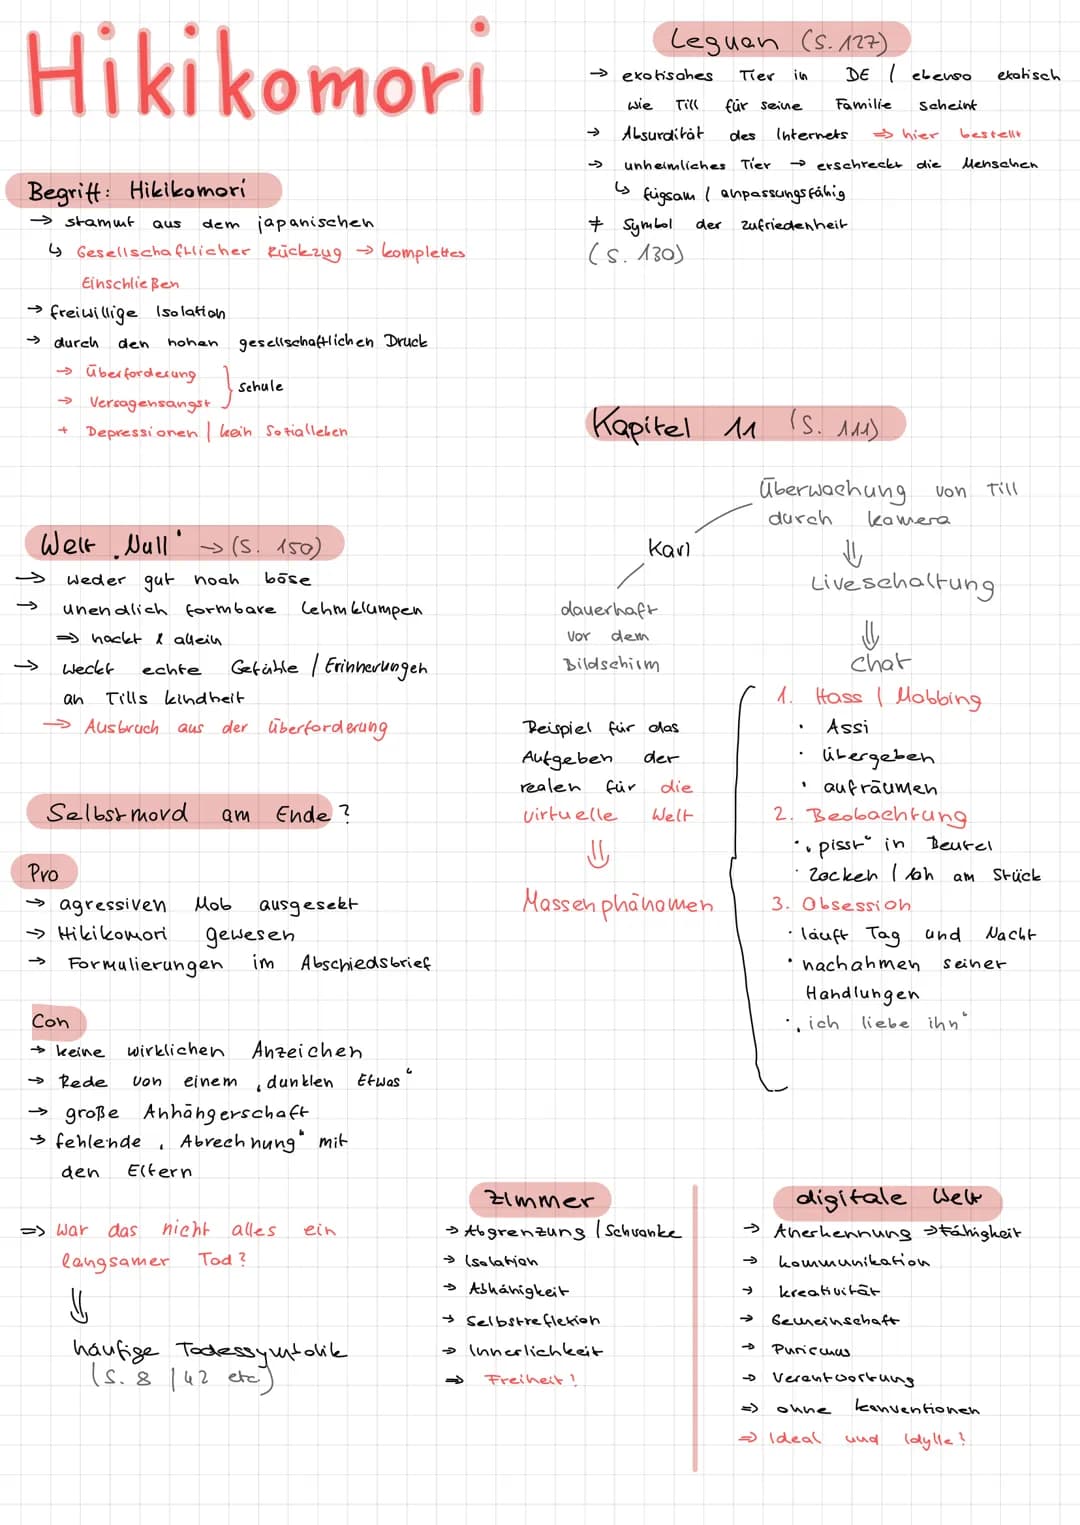 Hikikomori
Begriff: Hikikomori
→ stammt aus dem japanischen
↳ Gesellschaftlicher Rückzug → komplettes
Einschließen
→ freiwillige Isolation
→ durch den hohen gesellschaftlichen Druck
→ Überforderung
→ Versagensangst } Schule
+ Depressionen | kein Sozialleben
Welt „Null" → (S. 150)
→ weder gut noch böse
→ unendlich formbare Lehmklumpen
⇒ nackt & allein
→ weckt echte Gefühle / Erinnerungen
an Tills Kindheit
→ Ausbruch aus der Überforderung
Selbstmord am Ende?
Pro
→ agressiven Mob ausgesetzt
→ Hikikomori gewesen
→ Formulierungen im Abschiedsbrief
Con
→ keine wirklichen Anzeichen
→ Rede von einem „dunklen Etwas"
→ große Anhängerschaft
→ fehlende „Abrechnung" mit
den Eltern
⇒ War das nicht alles ein
langsamer Tod?
⇓
häufige Todessymbolik
(S. 8 | 42 etc)
Leguan (S. 127)
→ exotisches Tier in DE / ebenso exotisch
wie Till für seine Familie scheint
→ Absurdität des Internets ⇒ hier bestellt
→ unheimliches Tier → erschreckt die Menschen
↳ fügsam / anpassungsfähig
≠ Symbol der Zufriedenheit
(S. 130)
Kapitel 11 (S. 111)
Karl
dauerhaft
vor dem
Bildschirm
Beispiel für das
Aufgeben der
realen für die
virtuelle Welt
⇓
Massenphänomen
Überwachung von Till
durch Kamera
⇓
Liveschaltung
⇓
Chat
1. Hass | Mobbing
· Assi
· übergeben
· aufräumen
2. Beobachtung
· „pisst" in Beutel
· Zocken | 16h am Stück
3. Obsession
· läuft Tag und Nacht
· nachahmen seiner
Handlungen
· „ich liebe ihn"
Zimmer
→ Abgrenzung / Schranke
→ Isolation
→ Abhänigkeit
→ Selbstreflexion
→ Innerlichkeit
⇒ Freiheit!
digitale Welt
→ Anerkennung → Fähigkeit
→ Kommunikation
→ Kreativität
→ Gemeinschaft
→ Purismus
→ Verantwortung
⇒ ohne Konventionen
⇒ Ideal und Idylle?